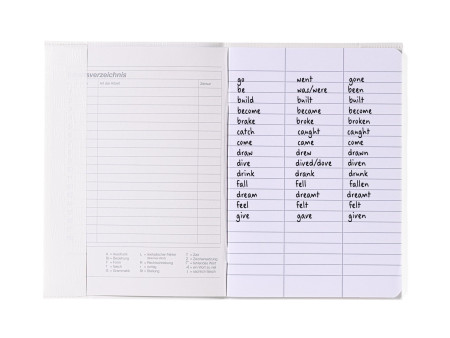 sverzeichnis
go went gone
be was/were been
build built built
become became become
brake broke broken
catch caught caught
come came come
draw drew drawn
dive dived/dove diven
drink drank drunk
fall fell fallen
dream dreamt dreamt
feel felt felt
give gave given